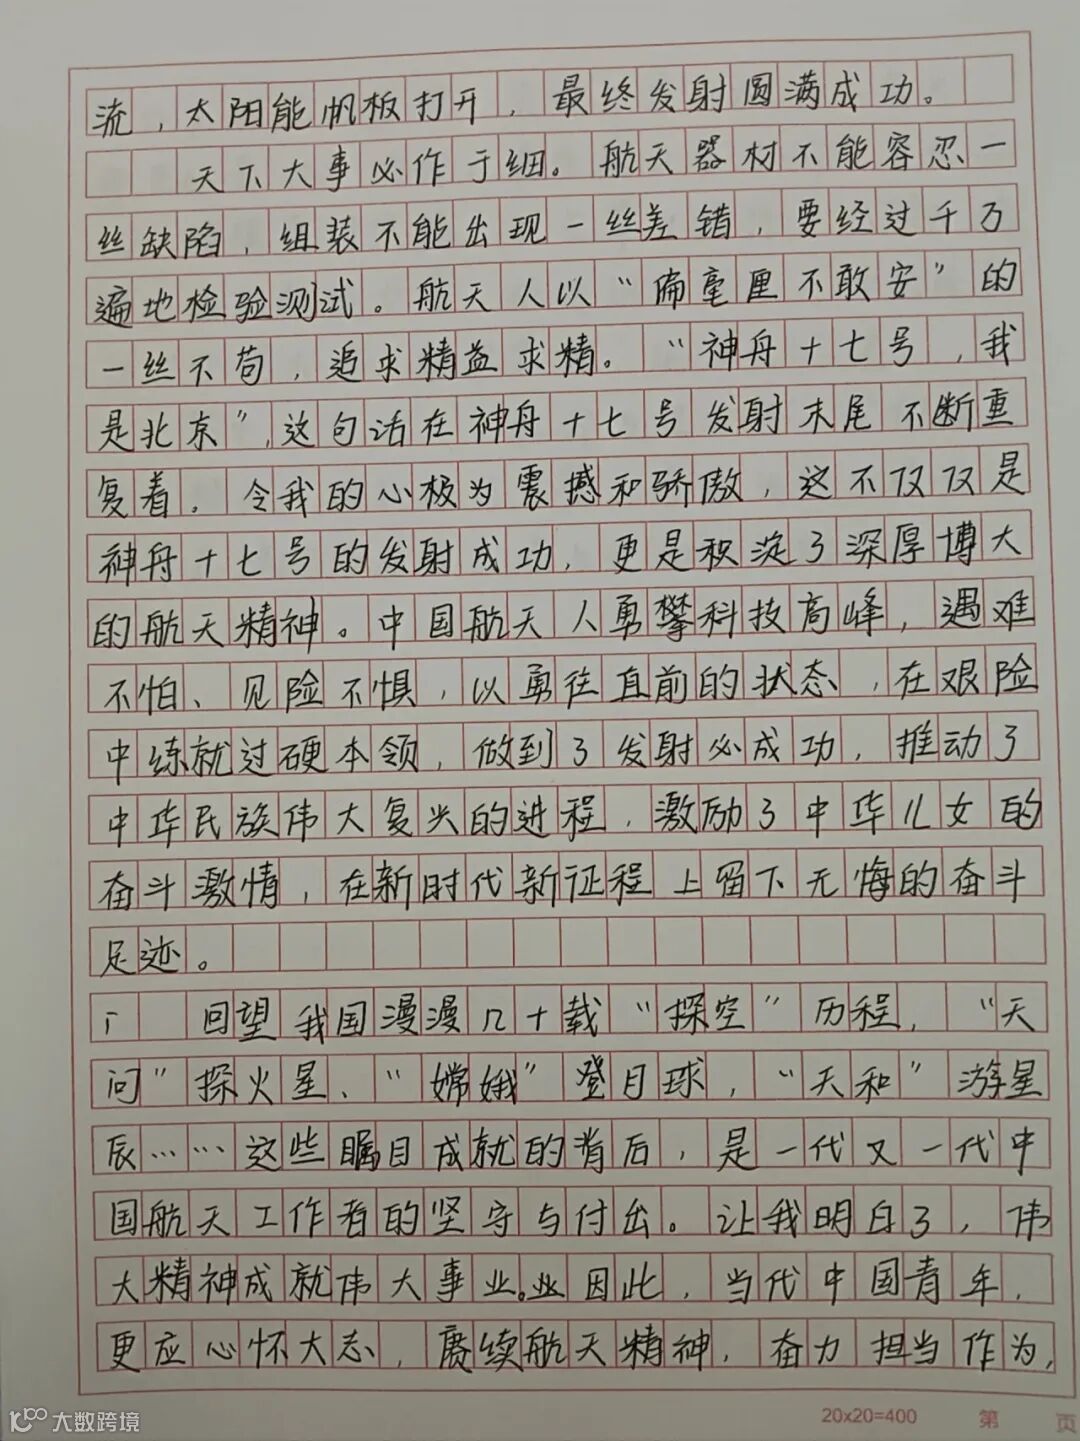 流，太阳能帆板打开，最终发射圆满成功。
天下大事必作于细。航天器材不能容忍一
丝缺陷，组装不能出现一丝差错，要经过千万
遍地检验测试。航天人以“隔毫厘不敢安”的
一丝不苟，追求精益求精。“神舟十七号，我
是北京”，这句话在神舟十七号发射末尾不断重
复着，令我的心极为震撼和骄傲，这不仅仅是
神舟十七号的发射成功，更是积淀了深厚博大
的航天精神。中国航天人勇攀科技高峰，遇难
不怕、见险不惧，以勇往直前的状态，在艰险
中练就过硬本领，做到了发射必成功，推动了
中华民族伟大复兴的进程，激励了中华儿女的
奋斗激情，在新时代新征程上留下无悔的奋斗
足迹。
回望我国漫漫几十载“探空”历程，“天
问”探火星、“嫦娥”登月球，“天和”游星
辰……这些瞩目成就的背后，是一代又一代中
国航天工作者的坚守与付出。让我明白了，伟
大精神成就伟大事业。业因此，当代中国青年，
更应心怀大志，赓续航天精神，奋力担当作为，
20x20=400 第 页
大数跨境